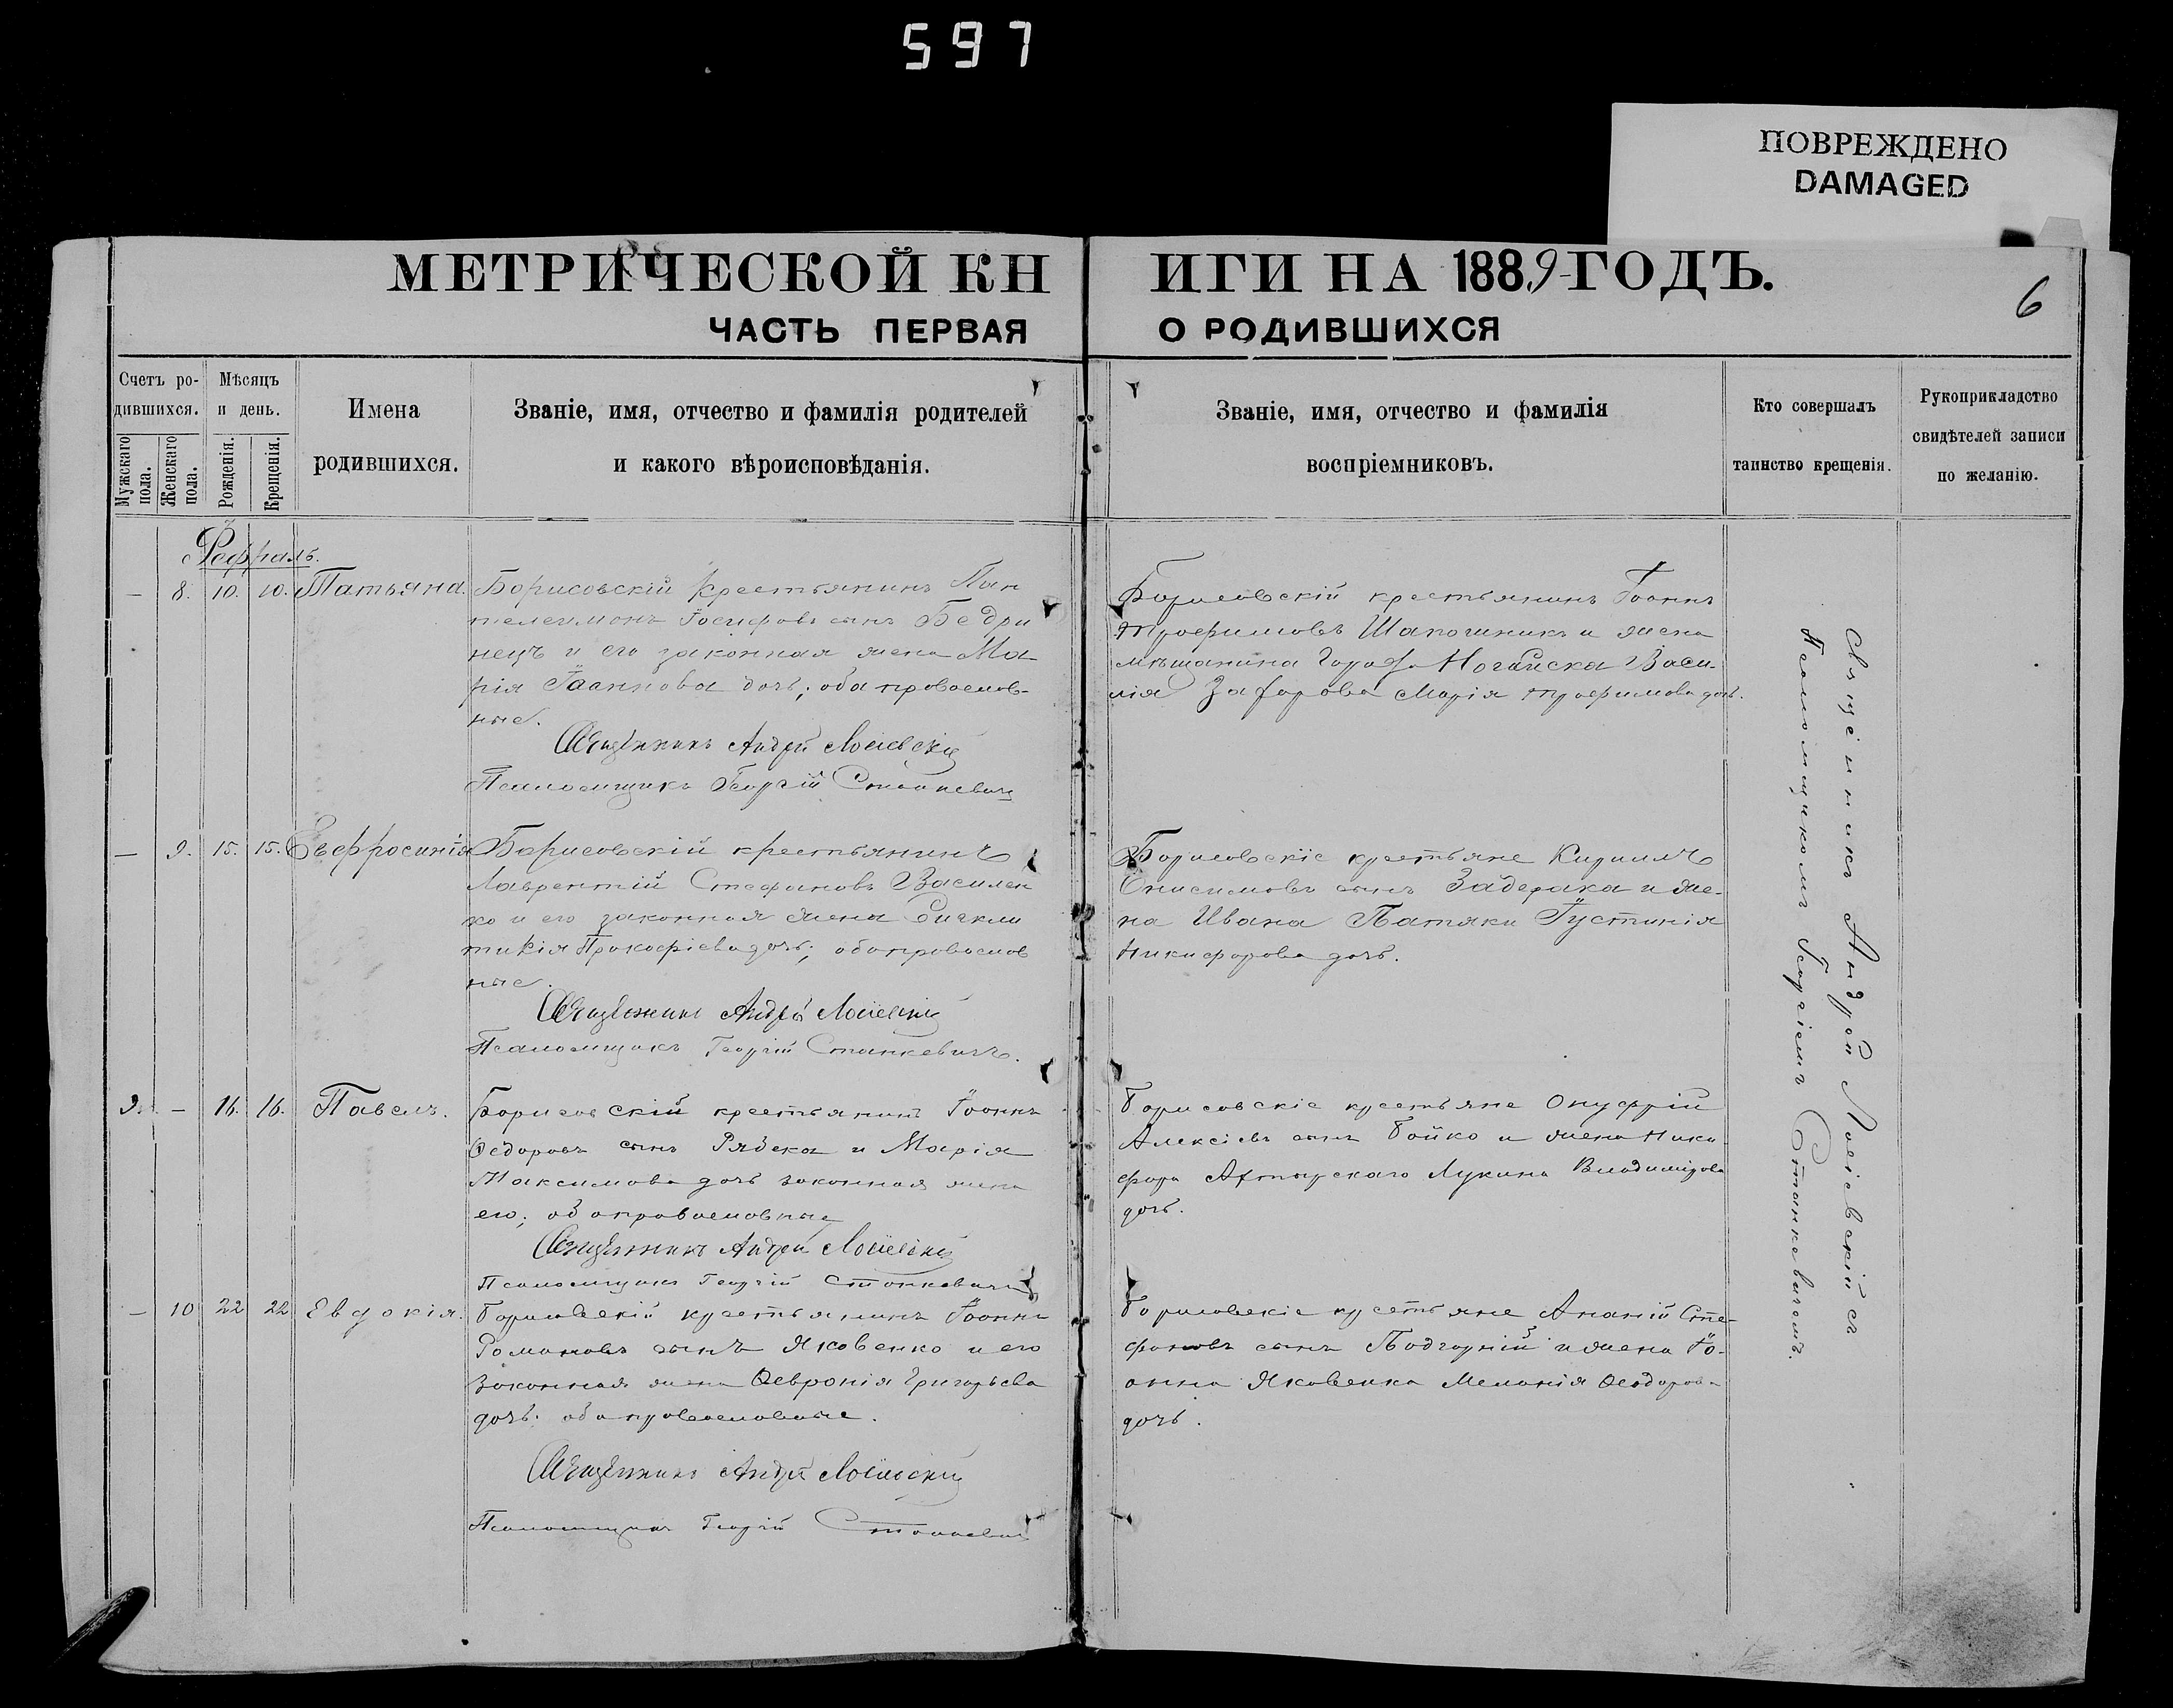 597
ПОВРЕЖДЕНО
DAMAGED
МЕТРИЧЕСКОЙ КНИГИ НА 1889 ГОДЪ.
6
ЧАСТЬ ПЕРВАЯ О РОДИВШИХСЯ
Счетъ родившихся.
Мужскаго пола.
Женскаго пола.
Мѣсяцъ и день.
Рожденія.
Крещенія.
Имена
родившихся.
Званіе, имя, отчество и фамилія родителей
и какого вѣроисповѣданія.
Званіе, имя, отчество и фамилія
воспріемниковъ.
Кто совершалъ
таинство крещенія.
Рукоприкладство
свидѣтелей записи
по желанію.
Февраль.
— 8. 10. 10. Татьяна.
Борисовскій крестьянинъ Пан
телеимонъ Іосифовъ сынъ Бедри
нецъ и его законная жена Ма
рія Іоаннова дочь; оба православ-
ные.
Священникъ Андрей Лосіевскій
Псаломщикъ Георгій Станкевичъ
Борисовскій крестьянинъ Іоаннъ
Трофимовъ Шапошникъ и жена
мѣщанина города Ногайска Васи-
лія Захарова Марія Трофимова дочь.
— 9. 15. 15. Евфросинія
Борисовскій крестьянинъ
Лаврентій Стефановъ Василен
ко и его законная жена
Прокофіева дочь; оба православ
ные.
Священникъ Андрей Лосіевскій
Псаломщикъ Георгій Станкевичъ.
Борисовскіе крестьяне Кириллъ
Онисимовъ сынъ Задерака и же-
на Ивана Патяки Іустинія
Никифорова дочь.
9. — 16. 16. Павелъ.
Борисовскій крестьянинъ Іоаннъ
Ѳедоровъ сынъ Рядека и Марія
Максимова дочь законная жена
его; оба православные
Священникъ Андрей Лосіевскій
Псаломщикъ Георгій Станкевичъ
Борисовскіе крестьяне Онуфрій
Алексіевъ сынъ Бойко и жена Ники-
фора Ахтырскаго Лукина Владимірова
дочь.
— 10 22 22 Евдокія.
Борисовскій крестьянинъ Іоаннъ
Романовъ сынъ Яковенко и его
законная жена Ѳевронія Григорьева
дочь; оба православные.
Священникъ Андрей Лосіевскій
Псаломщикъ Георгій Станкевичъ
Борисовскіе крестьяне Ананій Сте-
фановъ сынъ Подгорній и жена Іо-
анна Яковенка Меланія Ѳеодорова
дочь.
Священникъ Андрей Лосіевскій съ
Псаломщикомъ Георгіемъ Станкевичемъ.